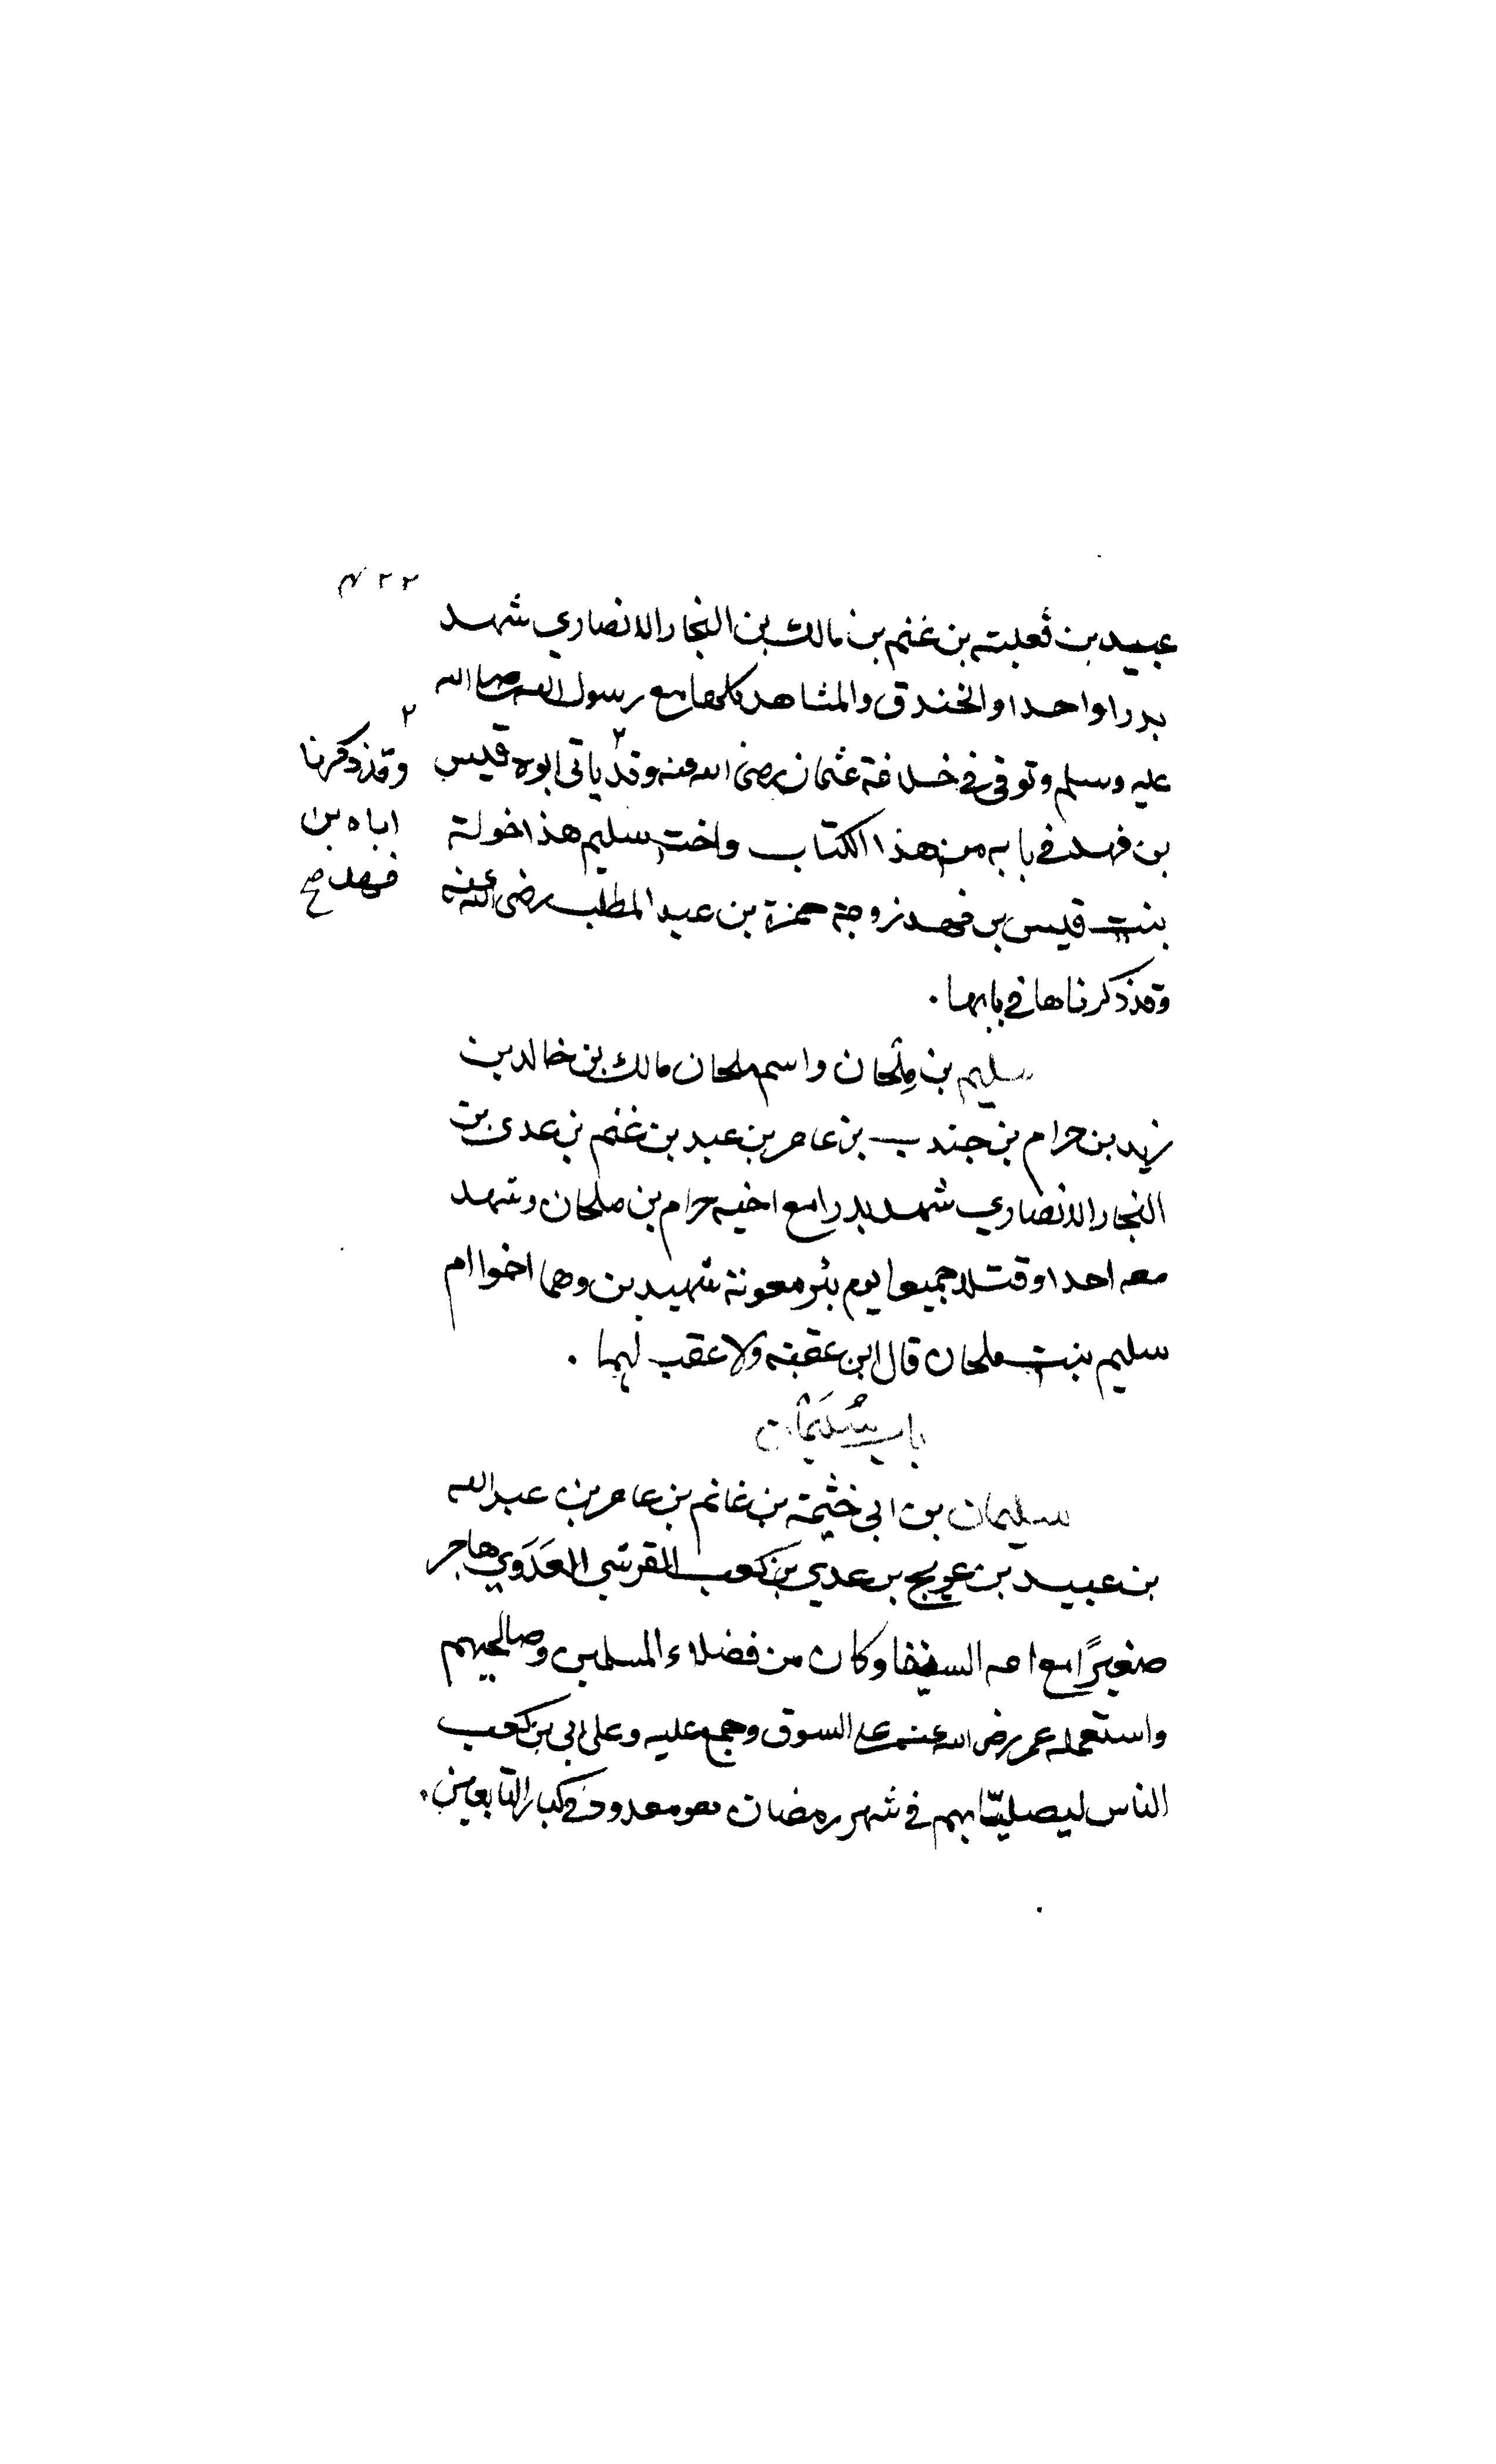 عبيد بن ثعلبته بن غنم بن مالك بن النجار الانصاري شهد
بدرا واحدا والخندق والمشاهد كلها مع رسول الله صلى الله
عليه وسلم وتوفى في خلافة عثمان رضى الله عنه وقد ياتى ابوه قيس
وقد ذكرنا
اباه بن
فهد صح
بن فهد في بابه من هذا الكتاب واخت سليم هذا خولة
بنت قيس بن فهد زوجة حمزة بن عبد المطلب رضى الله عنه
وقد ذكرناها في بابها .
سليم بن ملحان واسم ملحان مالك بن خالد بن
زيد بن حرام بن جندب بن عامر بن عبد بن غنم بن عدى بن
النجار الانصاري شهد بدرا مع اخيه حرام بن ملحان وشهد
معه احدا وقتلا جميعا يوم بئر معونة شهيدين وهما اخوا ام
سليم بنت ملحان قال ابن عقبة ولا عقب لهما .
باب سُلَيمان
سليمان بن ابى خثيمة بن غانم بن عامر بن عبد الله
بن عبيد بن عويج بن عدي بن كعب القرشي العَدَوي هاجر
صغيرًا مع امه السفا وكان من فضلاء المسلمين وصالحيهم
واستعمله عمر رضى الله عنه على السوق وجمع عليه وعلى ابى بن كعب
الناس ليصليّا بهم في شهر رمضان وهو معدود في كبار التابعين .